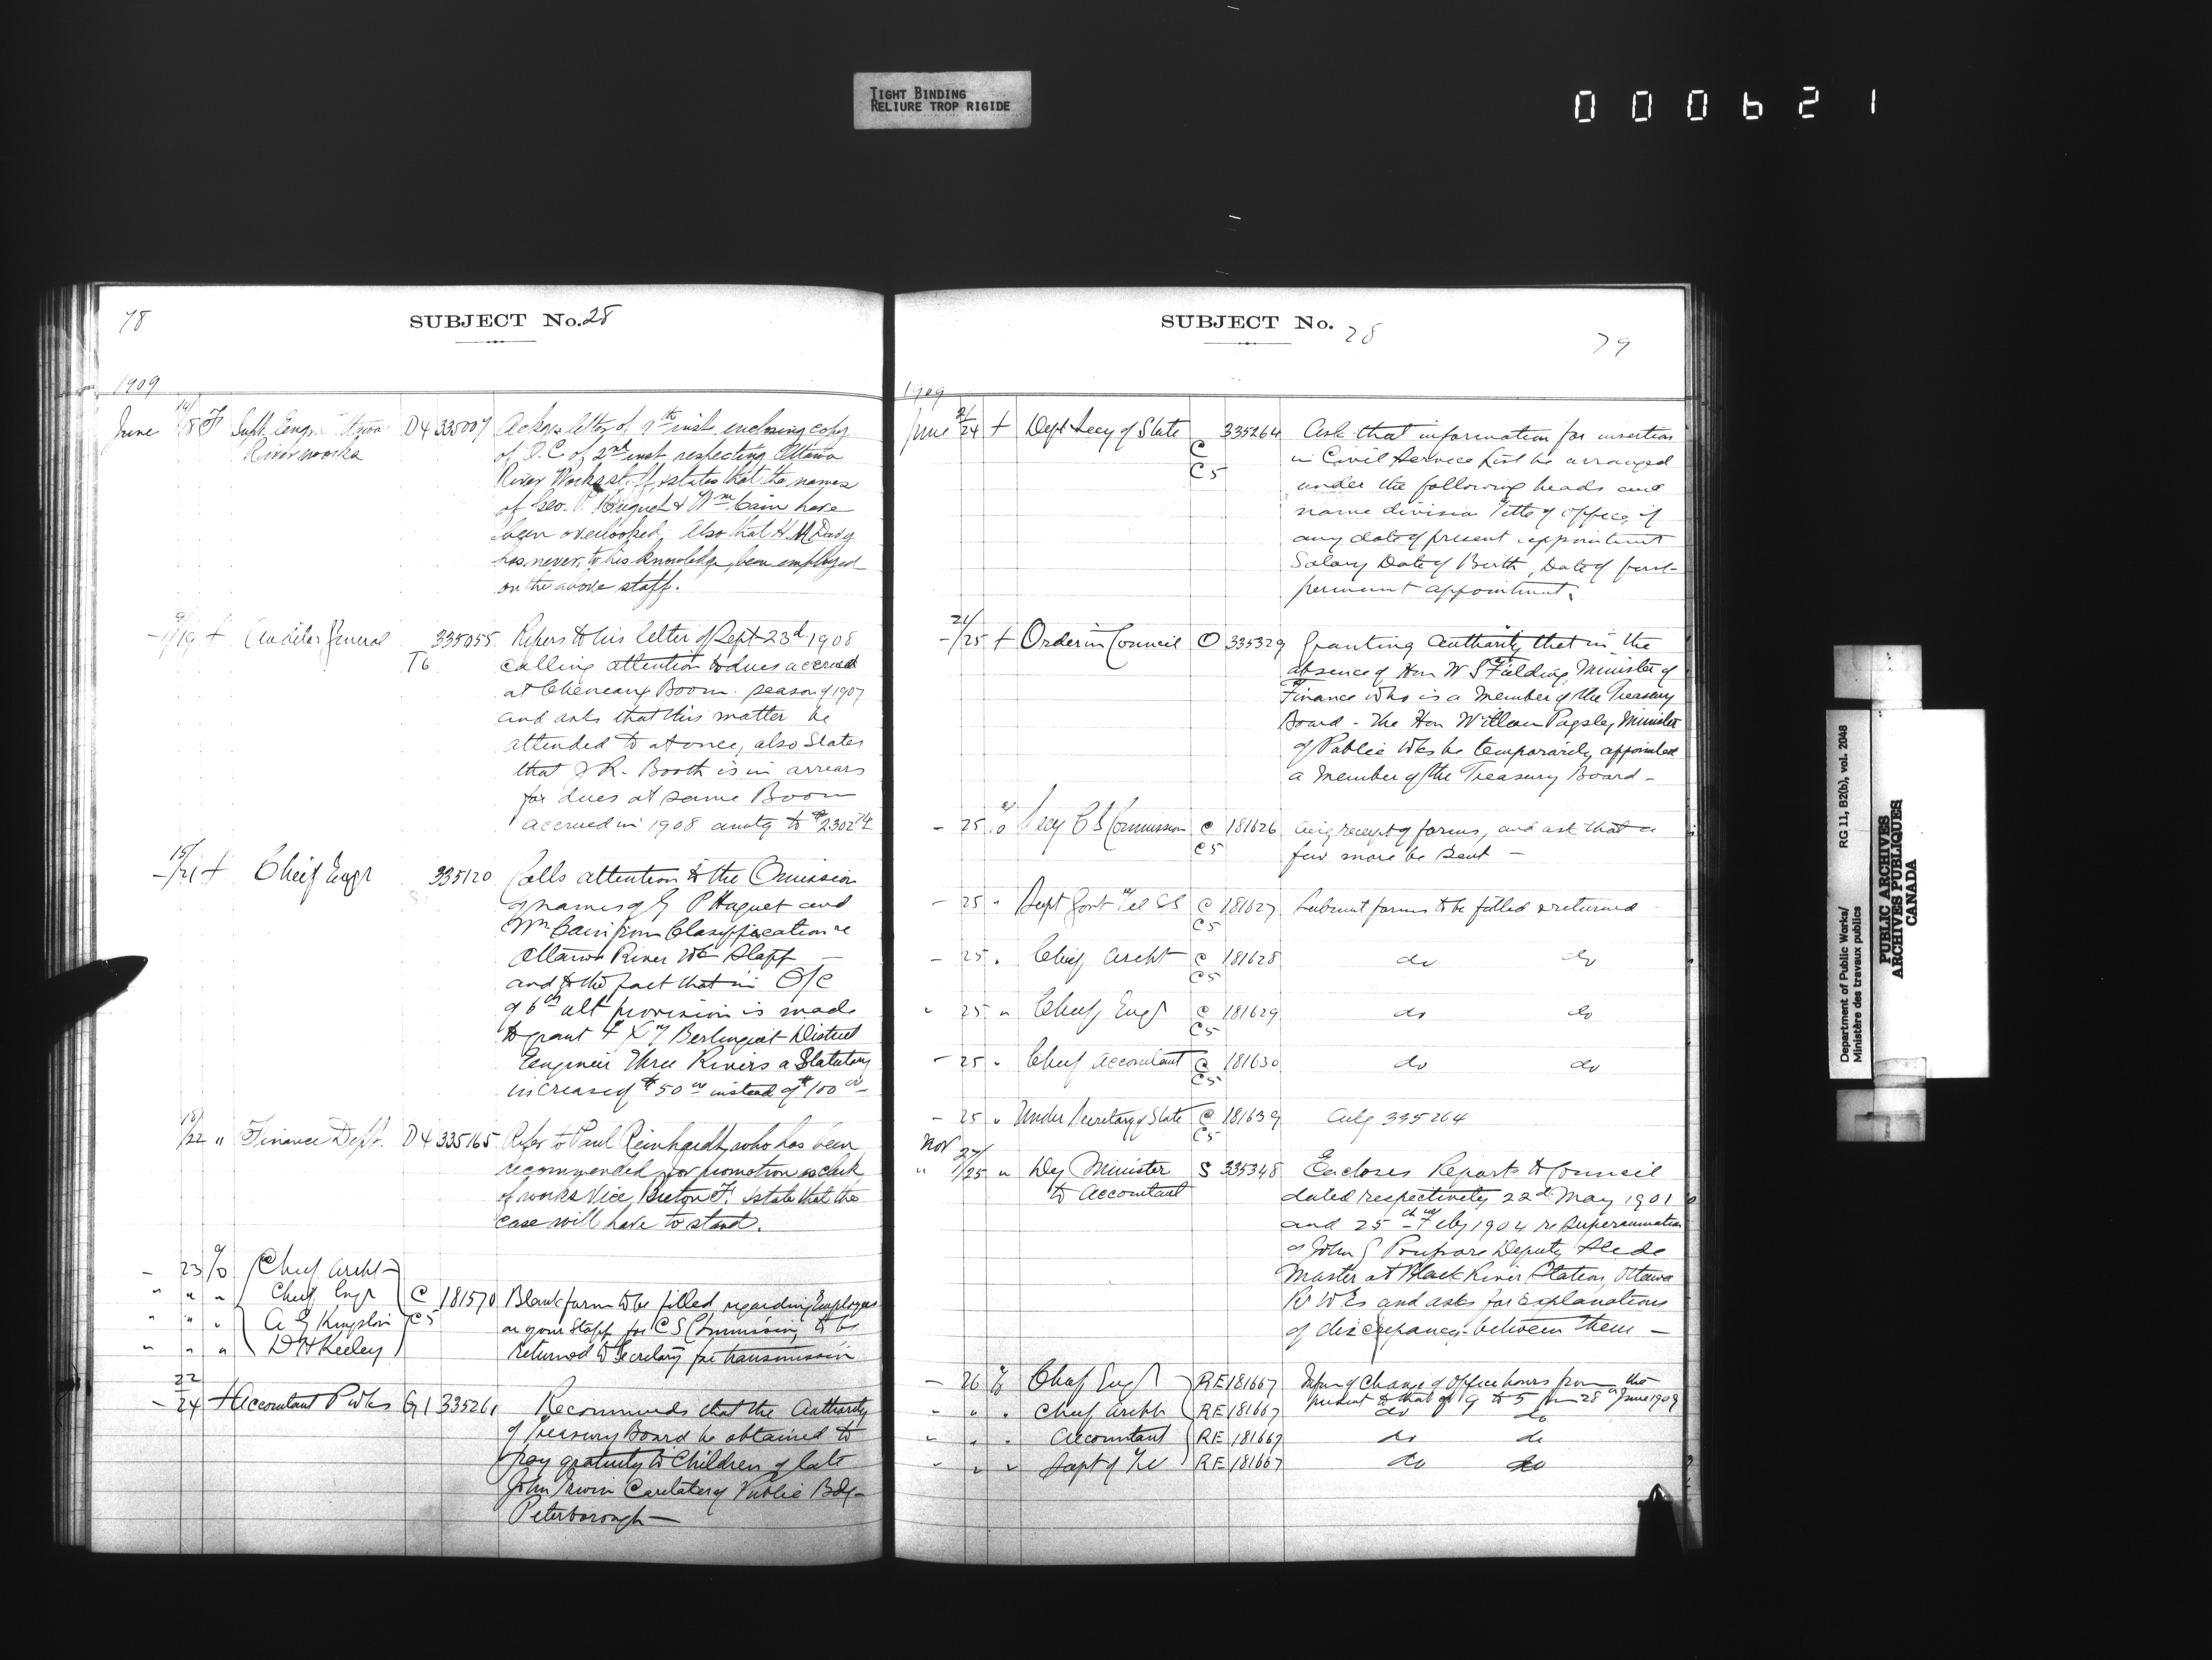 TIGHT BINDING
RELIURE TROP RIGIDE
000621
78
SUBJECT No. 28
1909
June 14/18 Supt Engr Ottawa D4 335007 Ackgs letter of 9th inst. enclosing copy
River works of O.C of 2nd inst respecting Ottawa
River Works staff, & states that the names
of Geo. P. Huguet & Wm Cain have
been overlooked, Also that H.
has never, to his knowledge, been employed
on the above staff.
9/19 + Auditor General 335055 Refers to his letter of Sept 23d 1908
T6 calling attention to dues accrued
at Cheneaux Boom season of 1907
and asks that this matter be
attended to at once, also States
that J R. Booth is in arrears
for dues at same Boom
accrued in 1908 amtg to $2302
15/21 + Chief Engr 335120 Calls attention to the Omission
of names of G P Huguet and
Wm Cain from Classification re
Ottawa River Wks Staff —
and to the fact that in O/C
of 6th ult provision is made
to grant F X T Berlinguet District
Engineer Three Rivers a Statutory
increase of $50 00 instead of $100 00
18/22 " Finance Dept. D4 335165 Refer to Paul Reinhardt, who has been
recommended for promotion as clerk
of works Vice Breton F. & state that the
case will have to stand.
- 23 % Chief Archt
" " " Chief Engr C 181570 Blank forms to be filled regarding Employees
" " " A G Kingston C5 on your Staff for C S Commission, to be
" " " D H Keeley returned to Secretary for transmission
22
- 24 + Accountant P Wks G1 335261 Recommends that the Authority
of Treasury Board be obtained to
pay gratuity to Children of late
John Irwin Caretaker of Public Bdg
Peterborough —
SUBJECT No. 28
79
1909
June 21/24 + Dept Secy of State 335264 Ask that information for insertion
C in Civil Service List be arranged
C5 under the following heads and
name division Title of office, if
any date of present appointment
Salary Date of Birth, Date of first
permanent appointment.
21/25 + Order in Council O 335329 Granting authority that in the
absence of Hon W S Fielding, Minister of
Finance who is a Member of the Treasury
Board - The Hon William Pugsley Minister
of Public Wks be temporarily appointed
a Member of the Treasury Board -
- 25 % Secy C S Commission C 181626 Ackg receipt of forms, and ask that a
C5 few more be sent —
- 25 " Supt Govt Tel SS C 181627 Submit forms to be filled & returned
C5
- 25 " Chief Archt C 181628 do do
C5
" 25 " Chief Engr C 181629 do do
C5
- 25 " Chief Accountant C 181630 do do
C5
- 25 " Under Secretary of State C 181639 Ackg 335264
C5
Nov 27
" /25 " Dep Minister S 335348 Encloses Reports to Council
to Accountant dated respectively 22d May 1901
and 25th Feby 1904 re Superannuation
of John G Poupore Deputy Slide
Master at Black River Station, Ottawa
R Wks and asks for explanations
of discrepancy between them —
- 26 % Chief Engr RE 181667 Inform of Change of Office hours from the
present to that of 9 to 5 from 28th June 1909
" " " Chief Archt RE 181667 do do
" " " Accountant RE 181667 do do
" " " Supt of Tel RE 181667 do do
Department of Public Works/
Ministère des travaux publics
RG 11, B2(b), vol. 2048
PUBLIC ARCHIVES
ARCHIVES PUBLIQUES
CANADA